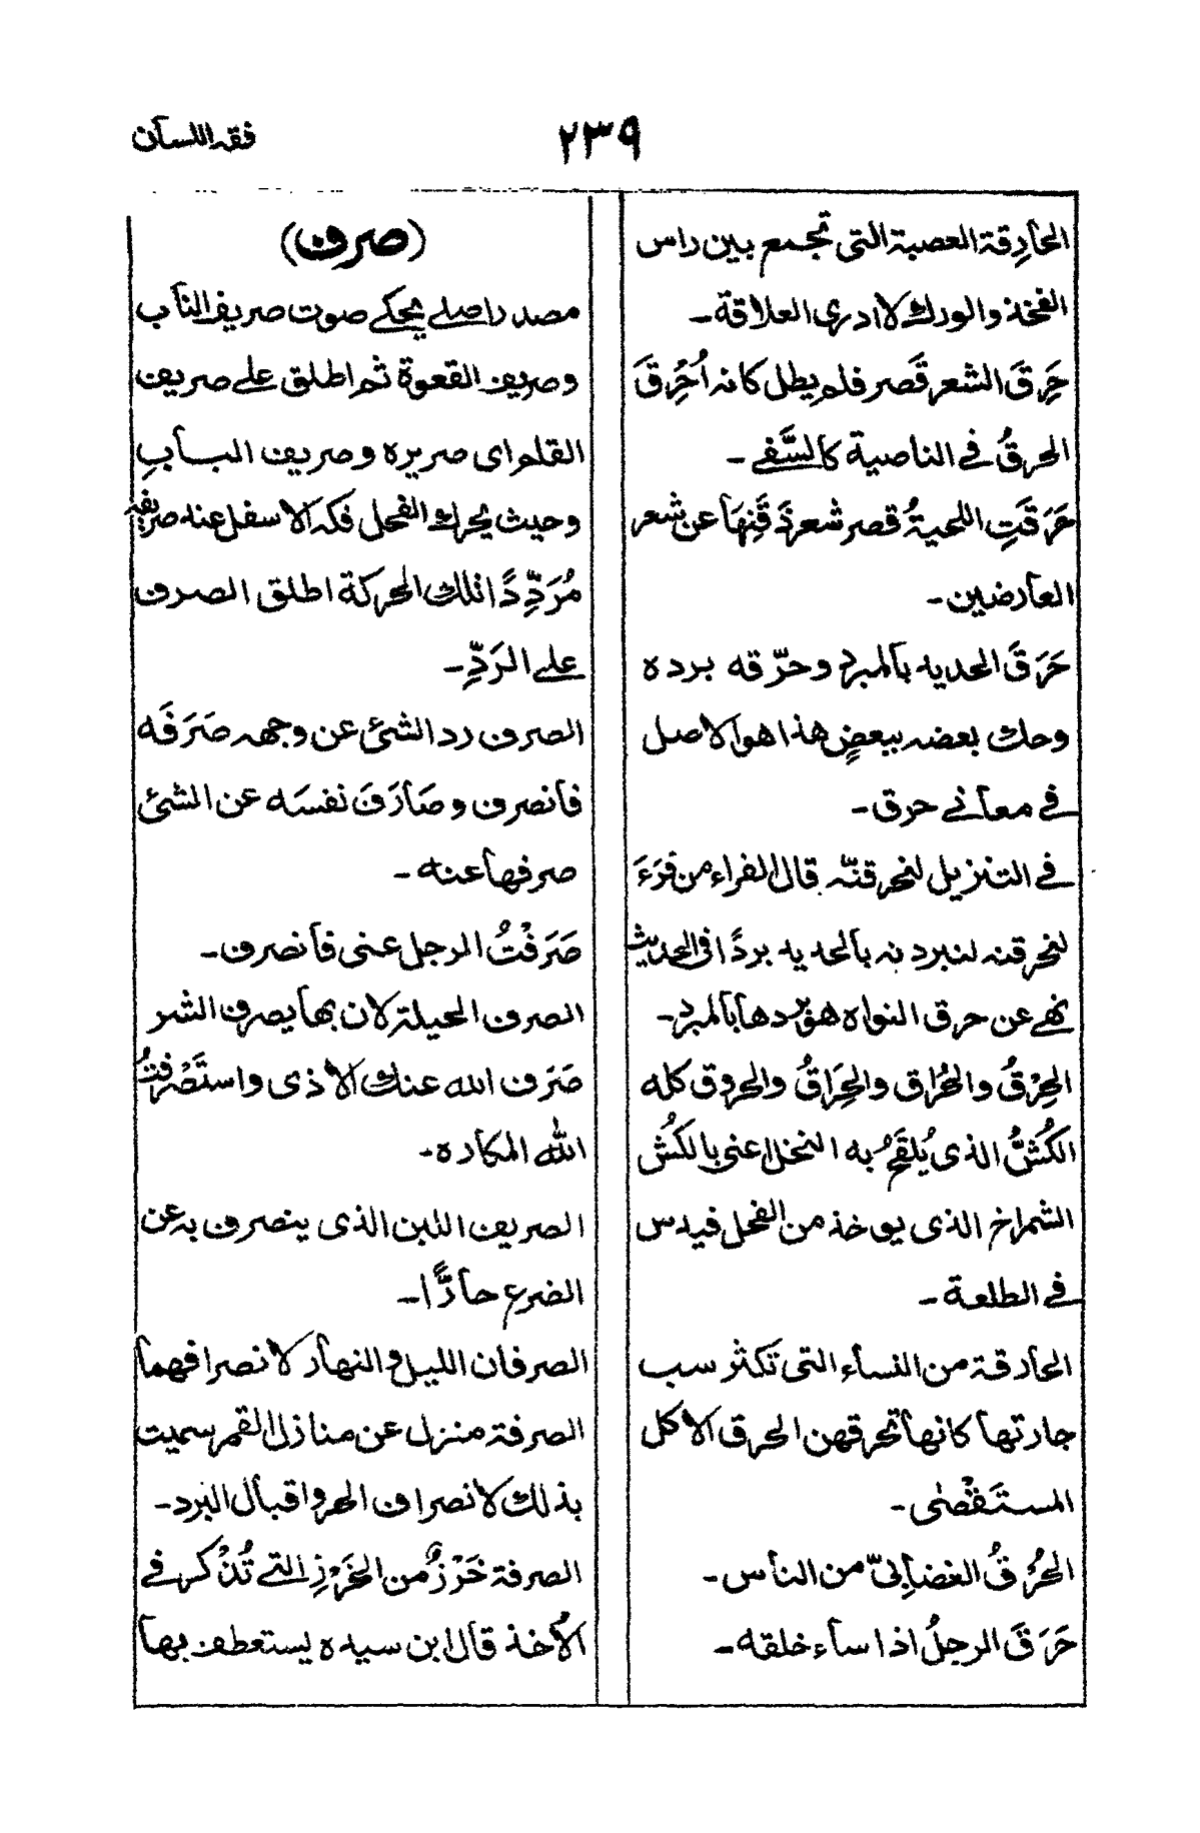 ٢٣٩
فقه اللسان
الحارِقة العصبة التى تجمع بين راس
الفخذ والورك لا ادرى العلاقة۔
حَرِقَ الشعر قَصر فلم يطل كانه اُحْرِقَ
الحرقُ في الناصية كالسَّفى۔
حَرَقَتِ اللحيةُ قصر شعر ذَقَنِهَا عن شعر
العارضين۔
حَرَقَ الحديد بالمبرد وحرّقه برده
وحك بعضه ببعضٍ هذا هو الاصل
في معاني حرق۔
في التنزيل لنحرقنّه قال الفراء من قرَءَ
لنحرقنه لنبردنه بالحديد بردًا فى الحديث
نهى عن حرق النواه هو بردها بالمبرد۔
الحِرْقُ والحُراق والحِرَاقُ والحروق كله
الكُشُّ الذى يُلقَحُ به النخل اعنى بالكُش
الشمراخ الذى يوخذ من الفحل فيدس
في الطلعة۔
الحارقة من النساء التى تَكثر سب
جارتها كانها تحرقهن الحرق الاكل
المستَقْصٰى۔
الحُرقُ الغضابىّ من الناس۔
حَرَقَ الرجلُ اذا ساء خلقه۔
(صرف)
مصدر اصلى يحكى صوت صريف الناب
وصريف القعوة ثم اطلق على صريف
القلم اى صريره وصريف البابِ
وحيث يحرك الفحل فكه الاسفل عند صريفه
مُرَدِّدًا تلك الحركة اطلق الصرف
على الرَدِّ۔
الصرف رد الشئ عن وجهه صَرَفَه
فانصرف وصَارَفَ نفسَه عن الشئ
صرفها عنه۔
صَرَفْتُ الرجل عنى فانصرف۔
الصرف الحيلة لان بها يصرف الشر
صَرَف الله عنك الاذى واستَصْرفتُ
الله المكاره۔
الصريف اللبن الذى ينصرف به عن
الضرع حارًّا۔
الصرفان الليل والنهار لانصرافهما
الصرفة منزل عن منازل القمر سميت
بذلك لانصراف الحر واقبال البرد۔
الصرفة خَرْزٌ من الخَرْزِ التى تُذْكر في
الاُخذ قال ابن سيده يستعطف بها